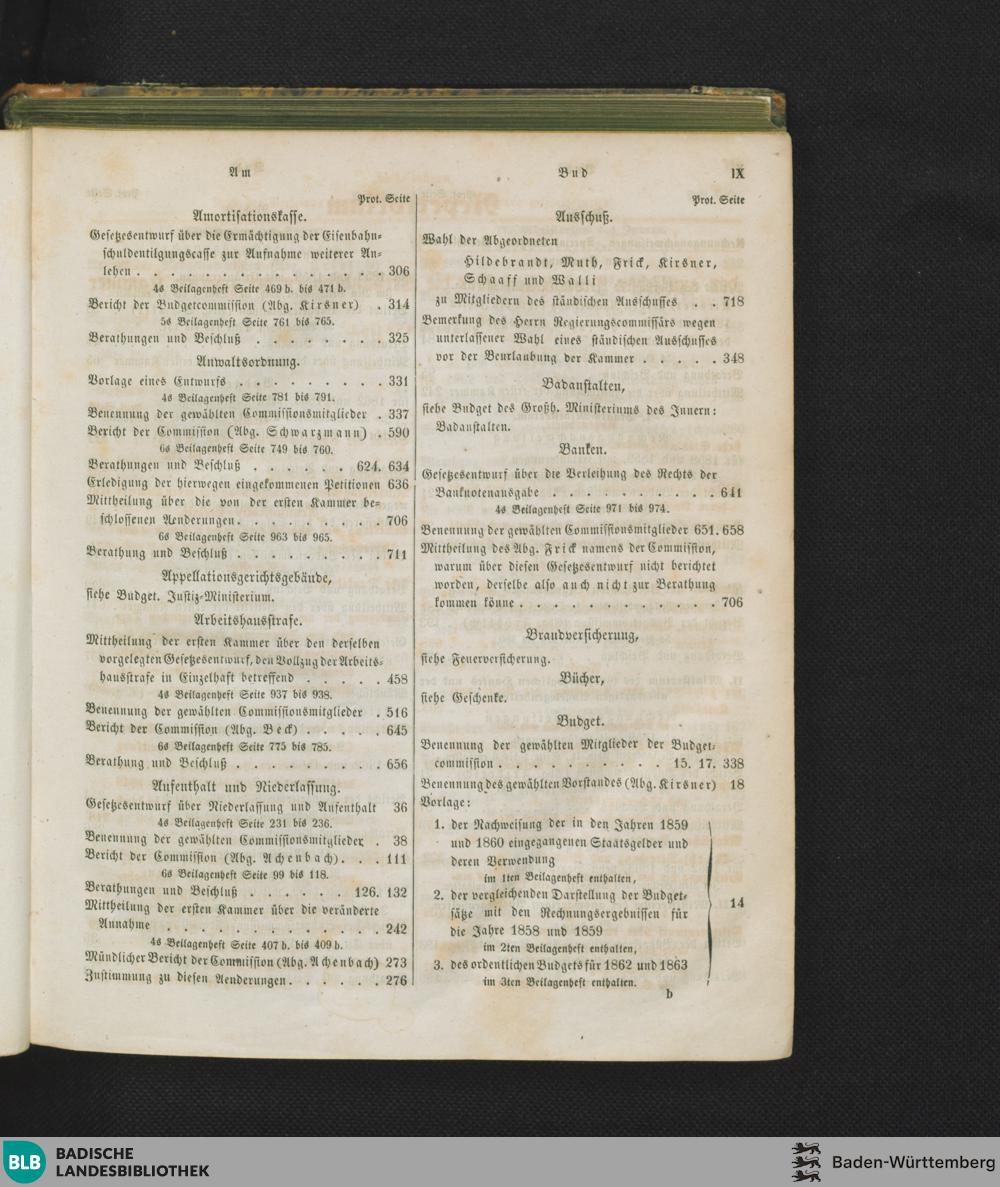 Am
Bud
IX
Prot. Seite
Amortisationskasse.
Gesetzesentwurf über die Ermächtigung der Eisenbahn-
schuldentilgungscasse zur Aufnahme weiterer An-
lehen . . . . . . . . . . . . . . 306
4s Beilagenheft Seite 469 b. bis 471 b.
Bericht der Budgetcommission (Abg. Kirsner) . 314
5s Beilagenheft Seite 761 bis 765.
Berathungen und Beschluß . . . . . . . . 325
Anwaltsordnung.
Vorlage eines Entwurfs . . . . . . . . . 331
4s Beilagenheft Seite 781 bis 791.
Benennung der gewählten Commissionsmitglieder . 337
Bericht der Commission (Abg. Schwarzmann) . 590
6s Beilagenheft Seite 749 bis 760.
Berathungen und Beschluß . . . . . . 624. 634
Erledigung der hierwegen eingekommenen Petitionen 636
Mittheilung über die von der ersten Kammer be-
schlossenen Aenderungen . . . . . . . . . 706
6s Beilagenheft Seite 963 bis 965.
Berathung und Beschluß . . . . . . . . . 711
Appellationsgerichtsgebäude,
siehe Budget. Justiz-Ministerium.
Arbeitshausstrafe.
Mittheilung der ersten Kammer über den derselben
vorgelegten Gesetzesentwurf, den Vollzug der Arbeits-
hausstrafe in Einzelhaft betreffend . . . . . 458
4s Beilagenheft Seite 937 bis 938.
Benennung der gewählten Commissionsmitglieder . 516
Bericht der Commission (Abg. Beck) . . . . . 645
6s Beilagenheft Seite 775 bis 785.
Berathung und Beschluß . . . . . . . . . 656
Aufenthalt und Niederlassung.
Gesetzesentwurf über Niederlassung und Aufenthalt 36
4s Beilagenheft Seite 231 bis 236.
Benennung der gewählten Commissionsmitglieder . 38
Bericht der Commission (Abg. Achenbach) . . . 111
6s Beilagenheft Seite 99 bis 118.
Berathungen und Beschluß . . . . . . 126. 132
Mittheilung der ersten Kammer über die veränderte
Annahme . . . . . . . . . . . . . 242
4s Beilagenheft Seite 407 b. bis 409 b.
Mündlicher Bericht der Commission (Abg. Achenbach) 273
Zustimmung zu diesen Aenderungen . . . . . . 276
Prot. Seite
Ausschuß.
Wahl der Abgeordneten
Hildebrandt, Muth, Frick, Kirsner,
Schaaff und Walli
zu Mitgliedern des ständischen Ausschusses . . 718
Bemerkung des Herrn Regierungscommissärs wegen
unterlassener Wahl eines ständischen Ausschusses
vor der Beurlaubung der Kammer . . . . . 348
Badanstalten,
siehe Budget des Großh. Ministeriums des Innern:
Badanstalten.
Banken.
Gesetzesentwurf über die Verleihung des Rechts der
Banknotenausgabe . . . . . . . . . . 641
4s Beilagenheft Seite 971 bis 974.
Benennung der gewählten Commissionsmitglieder 651. 658
Mittheilung des Abg. Frick namens der Commission,
warum über diesen Gesetzesentwurf nicht berichtet
worden, derselbe also auch nicht zur Berathung
kommen könne . . . . . . . . . . . . 706
Brandversicherung,
siehe Feuerversicherung.
Bücher,
siehe Geschenke.
Budget.
Benennung der gewählten Mitglieder der Budget-
commission . . . . . . . . . . 15. 17. 338
Benennung des gewählten Vorstandes (Abg. Kirsner) 18
Vorlage:
1. der Nachweisung der in den Jahren 1859
und 1860 eingegangenen Staatsgelder und
deren Verwendung
im 1ten Beilagenheft enthalten,
2. der vergleichenden Darstellung der Budget-
sätze mit den Rechnungsergebnissen für
die Jahre 1858 und 1859
im 2ten Beilagenheft enthalten,
3. des ordentlichen Budgets für 1862 und 1863
im 3ten Beilagenheft enthalten.
14
b
BLB
BADISCHE
LANDESBIBLIOTHEK
Baden-Württemberg